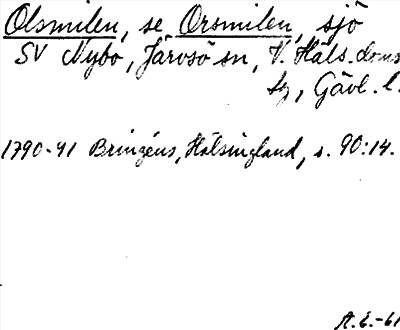 Olsmilen, se Orsmilen, sjö
SV Nybo, Järvsö sn, V. Häls. doms
tg, Gävl. l.
1790-91 Brinzéus, Hälsingland, s. 90:14.
A.E.-61